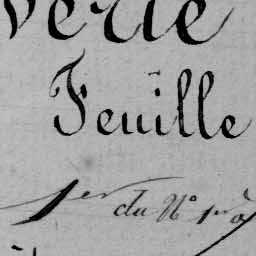 verte
Feuille
1er du N° 1er à